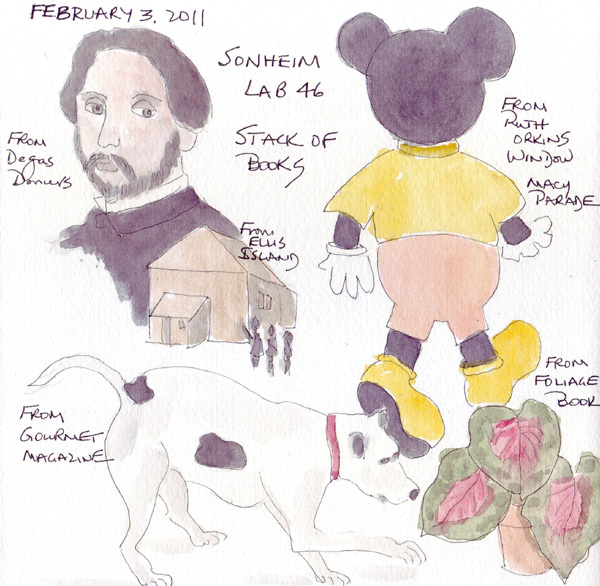 FEBRUARY 3, 2011
SONHEIM
LAB 46
STACK OF
BOOKS
FROM
Degas
Dancers
From
ELLIS
ISLAND
FROM
RUTH
ORKINS
WINDOW
MACY
PARADE
FROM
GOURMET
MAGAZINE
FROM
FOLIAGE
BOOK